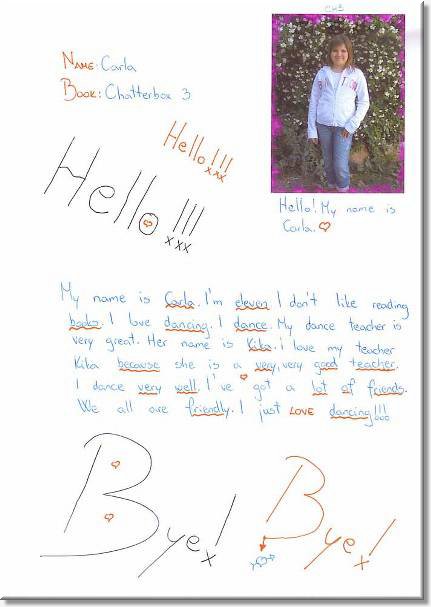 Ch3
Name: Carla
Book: Chatterbox 3
Hello!!!
xxx
Hello!!!
xxx
Hello! My name is
Carla.
My name is Carla. I'm eleven. I don't like reading
books. I love dancing. I dance. My dance teacher is
very great. Her name is Kika. i love my teacher
Kika because she is a very, very good teacher.
I dance very well. I've got a lot of friends.
We all are friendly. I just LOVE dancing!!!
Bye!
x
Bye!
x